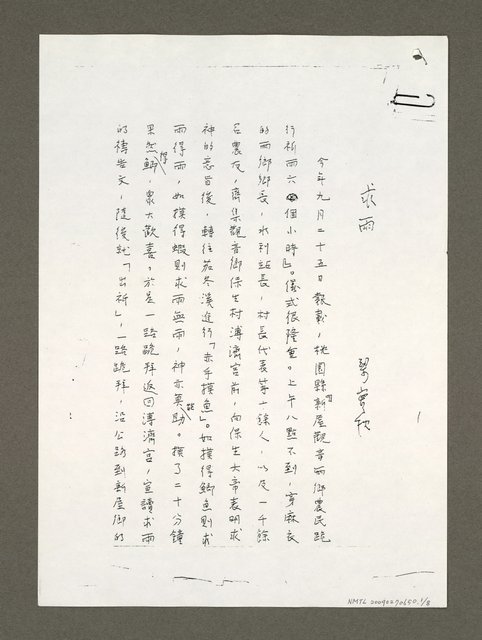 求雨
今年九月二十五日報載，桃園縣新屋觀音兩鄉農民跪
行祈雨六個小時」。儀式很隆重。上午八點不到，穿麻衣
的兩鄉鄉長，水利站長，村長代表等一餘人，以及一千餘
名農友，齊集觀音鄉保生村溥濟宮前，向保生大帝表明求
神的意旨後，轉往茄苳溪進行「赤手摸魚」。如摸得鯽魚則求
雨得雨，如摸得蝦則求雨無雨，神亦莫助。摸了二十分鐘
果然得鯽，眾大歡喜。於是一路跪拜返回溥濟宮，宣讀求雨
的禱告文，隨後就「出祈」，一路跪拜，沿公路到新屋鄉的
NMTL 20090270650.1/8